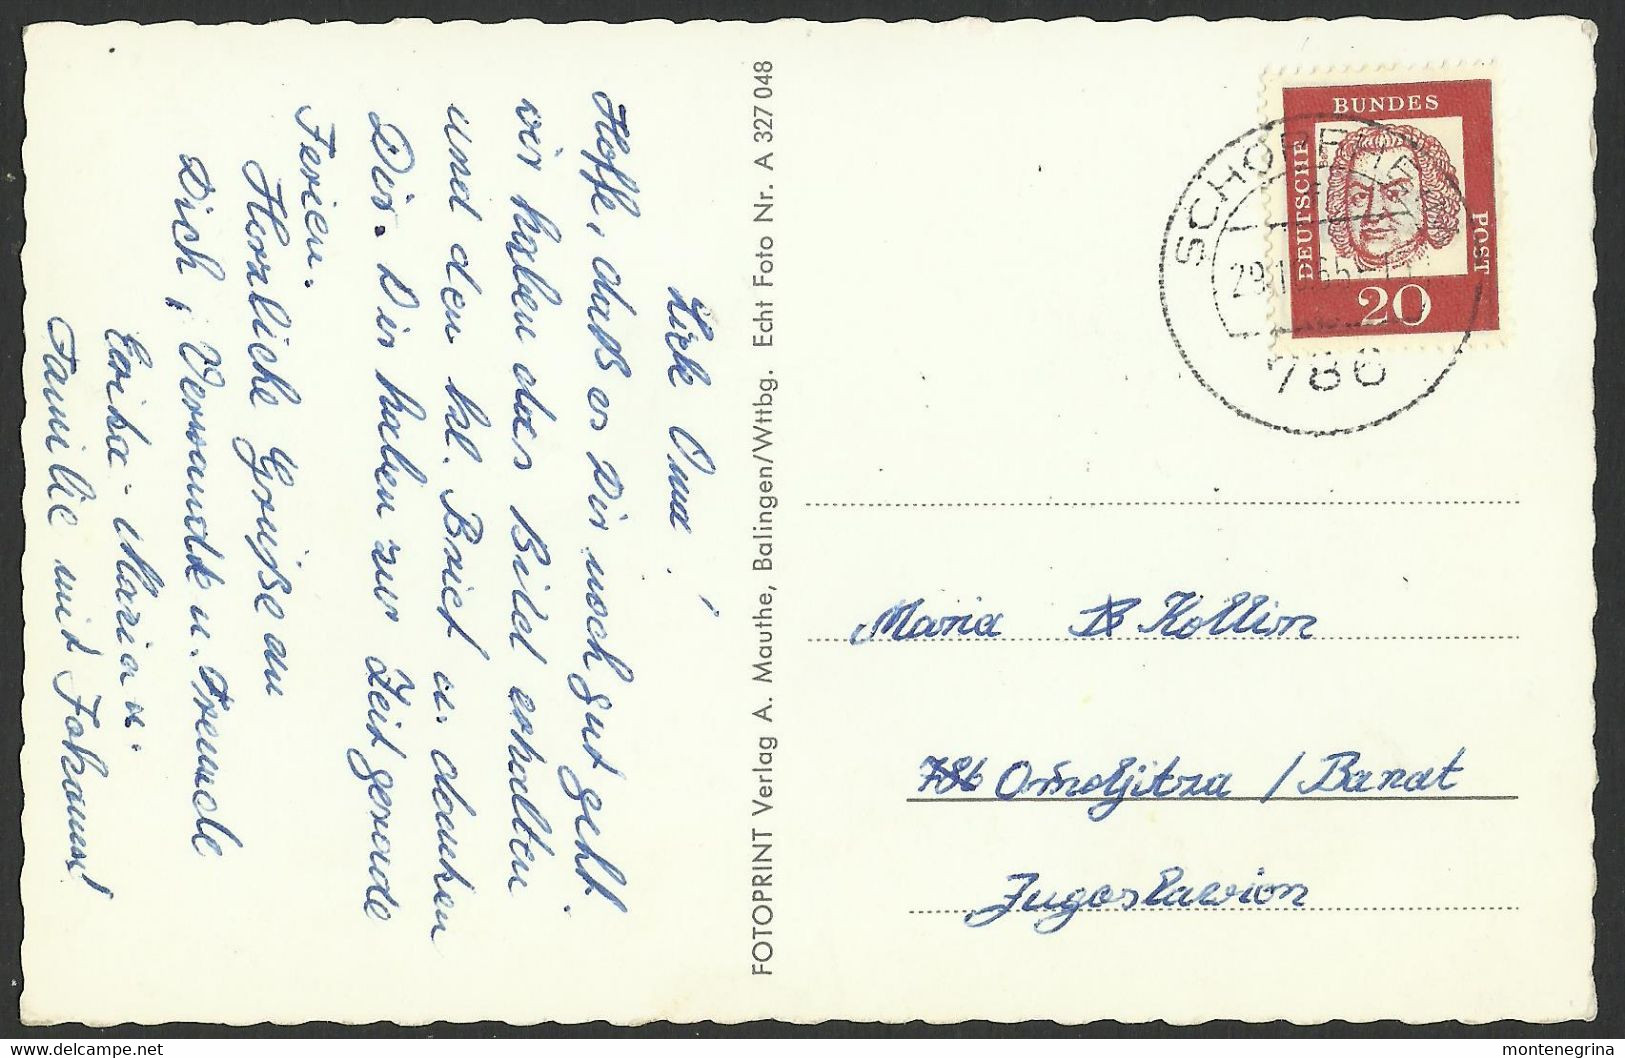 Lieb Omi!
Hoffe, daß es Dir noch gut geht.
wir haben das Bild erhalten
und den kl. Brief u. danken
Dir. Wir haben zur Zeit gerade
Ferien.
Herzliche Grüße an
Dich, Verwandte u. Freunde
Erika-Maria u.
Familie mit Johann!
FOTOPRINT Verlag A. Mauthe, Balingen/Wttbg. Echt Foto Nr. A 327 048
BUNDES
DEUTSCHE
POST
20
SCHOPFHEIM
29.10.65
786
Maria Kollin
786 Omoljitza / Banat
Jugoslawion
montenegrina